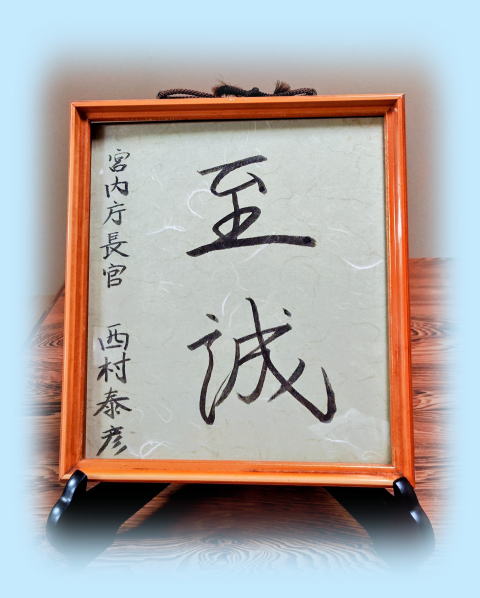 至誠
宮内庁長官 西村泰彦